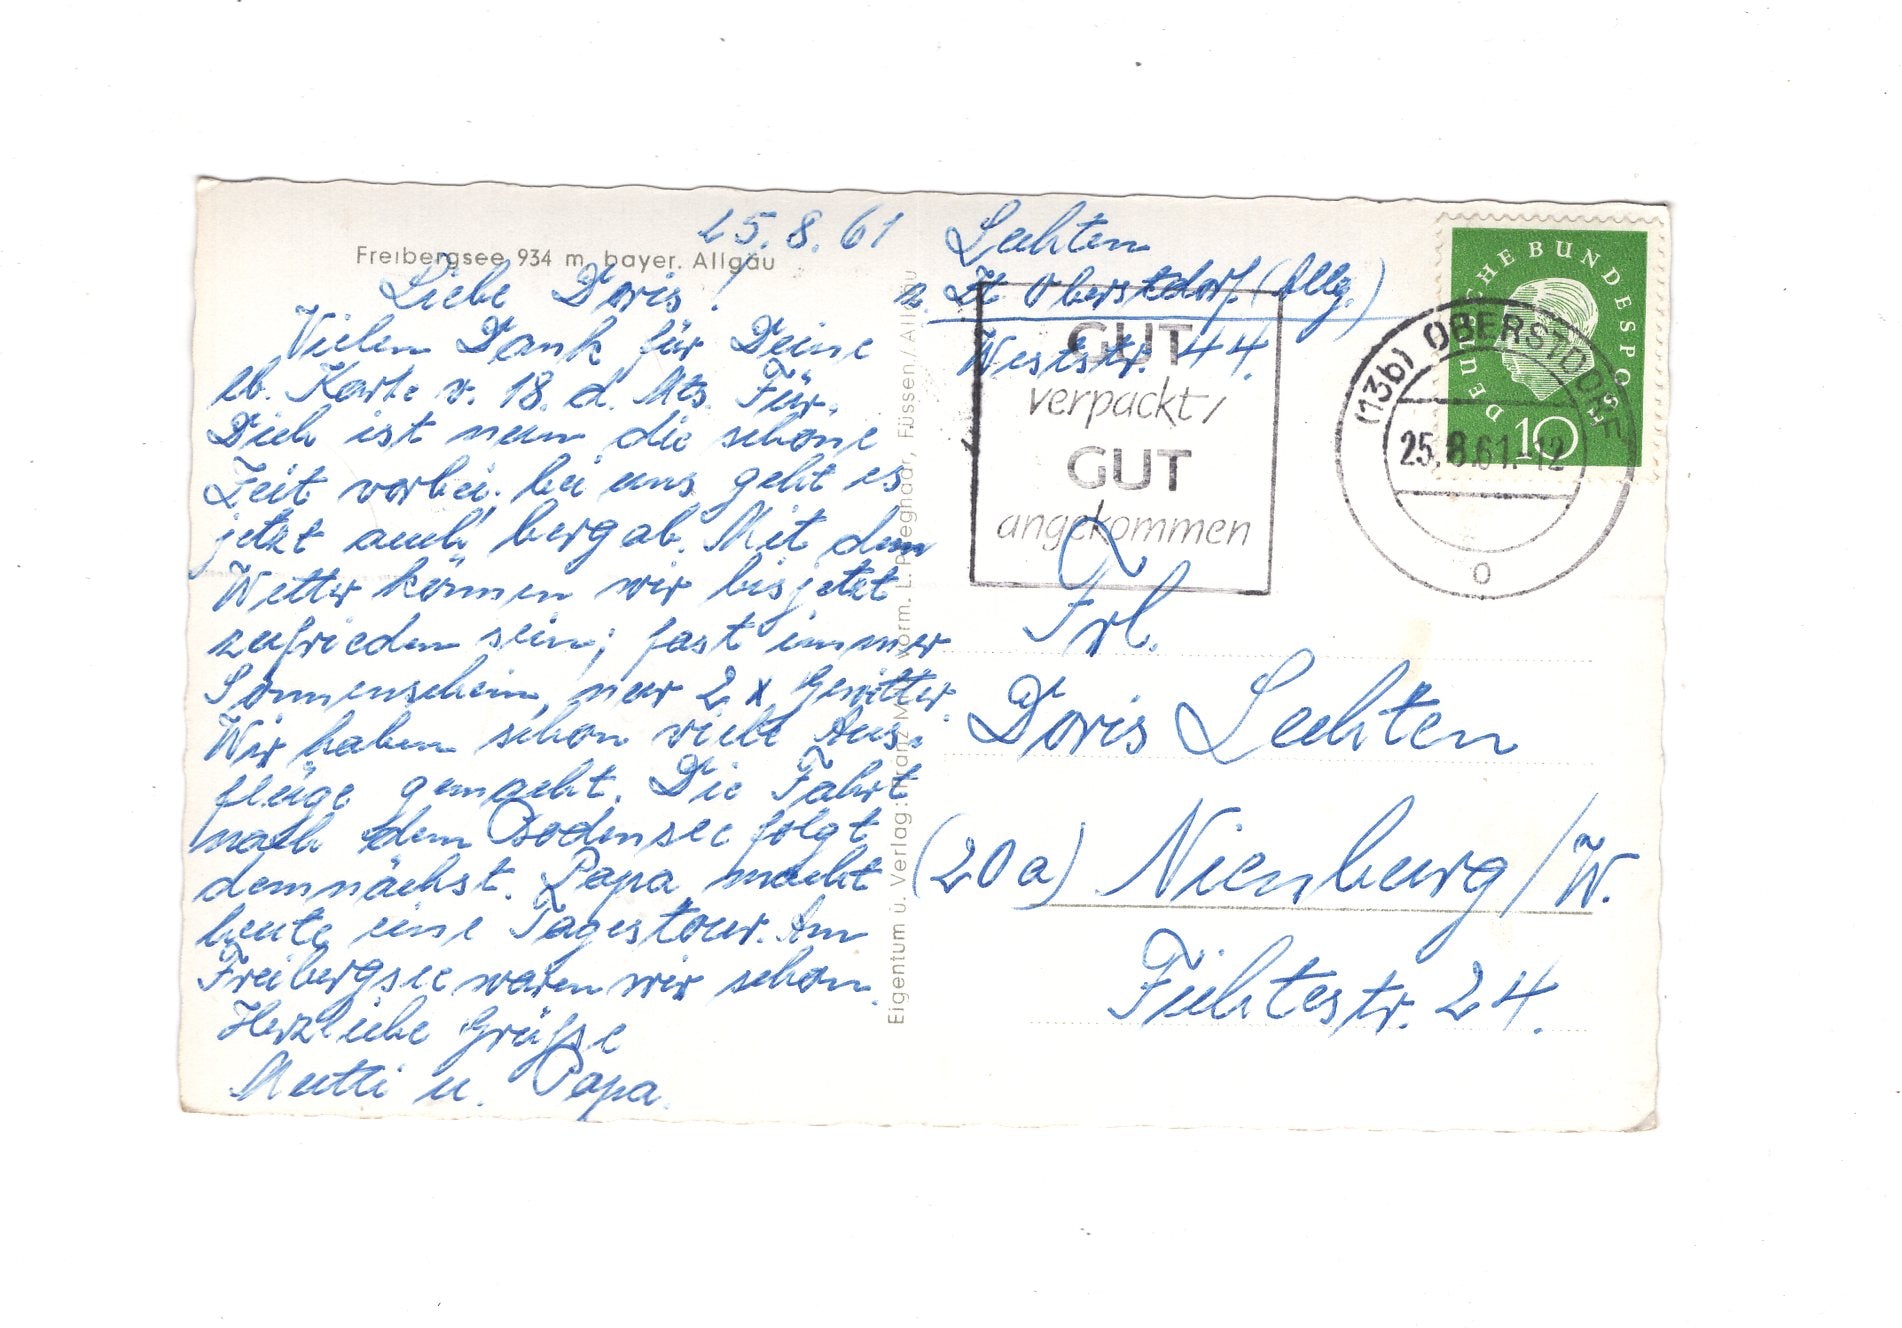 Freibergsee 934 m, bayer. Allgäu
25.8.61
Liebe Doris!
Vielen Dank für Deine
lb. Karte v. 18. d. Mts. Für
Dich ist nun die schöne
Zeit vorbei, bei uns geht es
jetzt auch "bergab". Mit dem
Wetter können wir bis jetzt
zufrieden sein; fast immer
Sonnenschein, nur 2 x Gewitter.
Wir haben schon viele Aus-
flüge gemacht. Die Fahrt
nach dem Bodensee folgt
demnächst. Papa macht
heute eine Tagestour. Am
Freibergsee waren wir schon.
Herzliche Grüße
Mutti u. Papa.
Eigentum u. Verlag: Franz Milz vorm. L. Preghaar, Füssen/Allgäu
Lechten
z. Zt. Oberstdorf (Allg.)
Weststr. 44.
GUT
verpackt/
GUT
angekommen
DEUTSCHE BUNDESPOST
10
(13b) OBERSTDORF
25.8.61.-12
o
Frl.
Doris Lechten
(20a) Nienburg/W.
Fichtestr. 24.